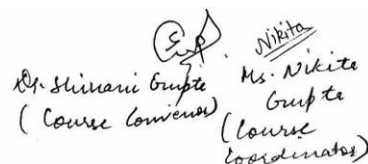 Nikita
Dr. Shivani Gupta
(Course Convenor)
Ms. Nikita
Gupta
(Course
Coordinator)